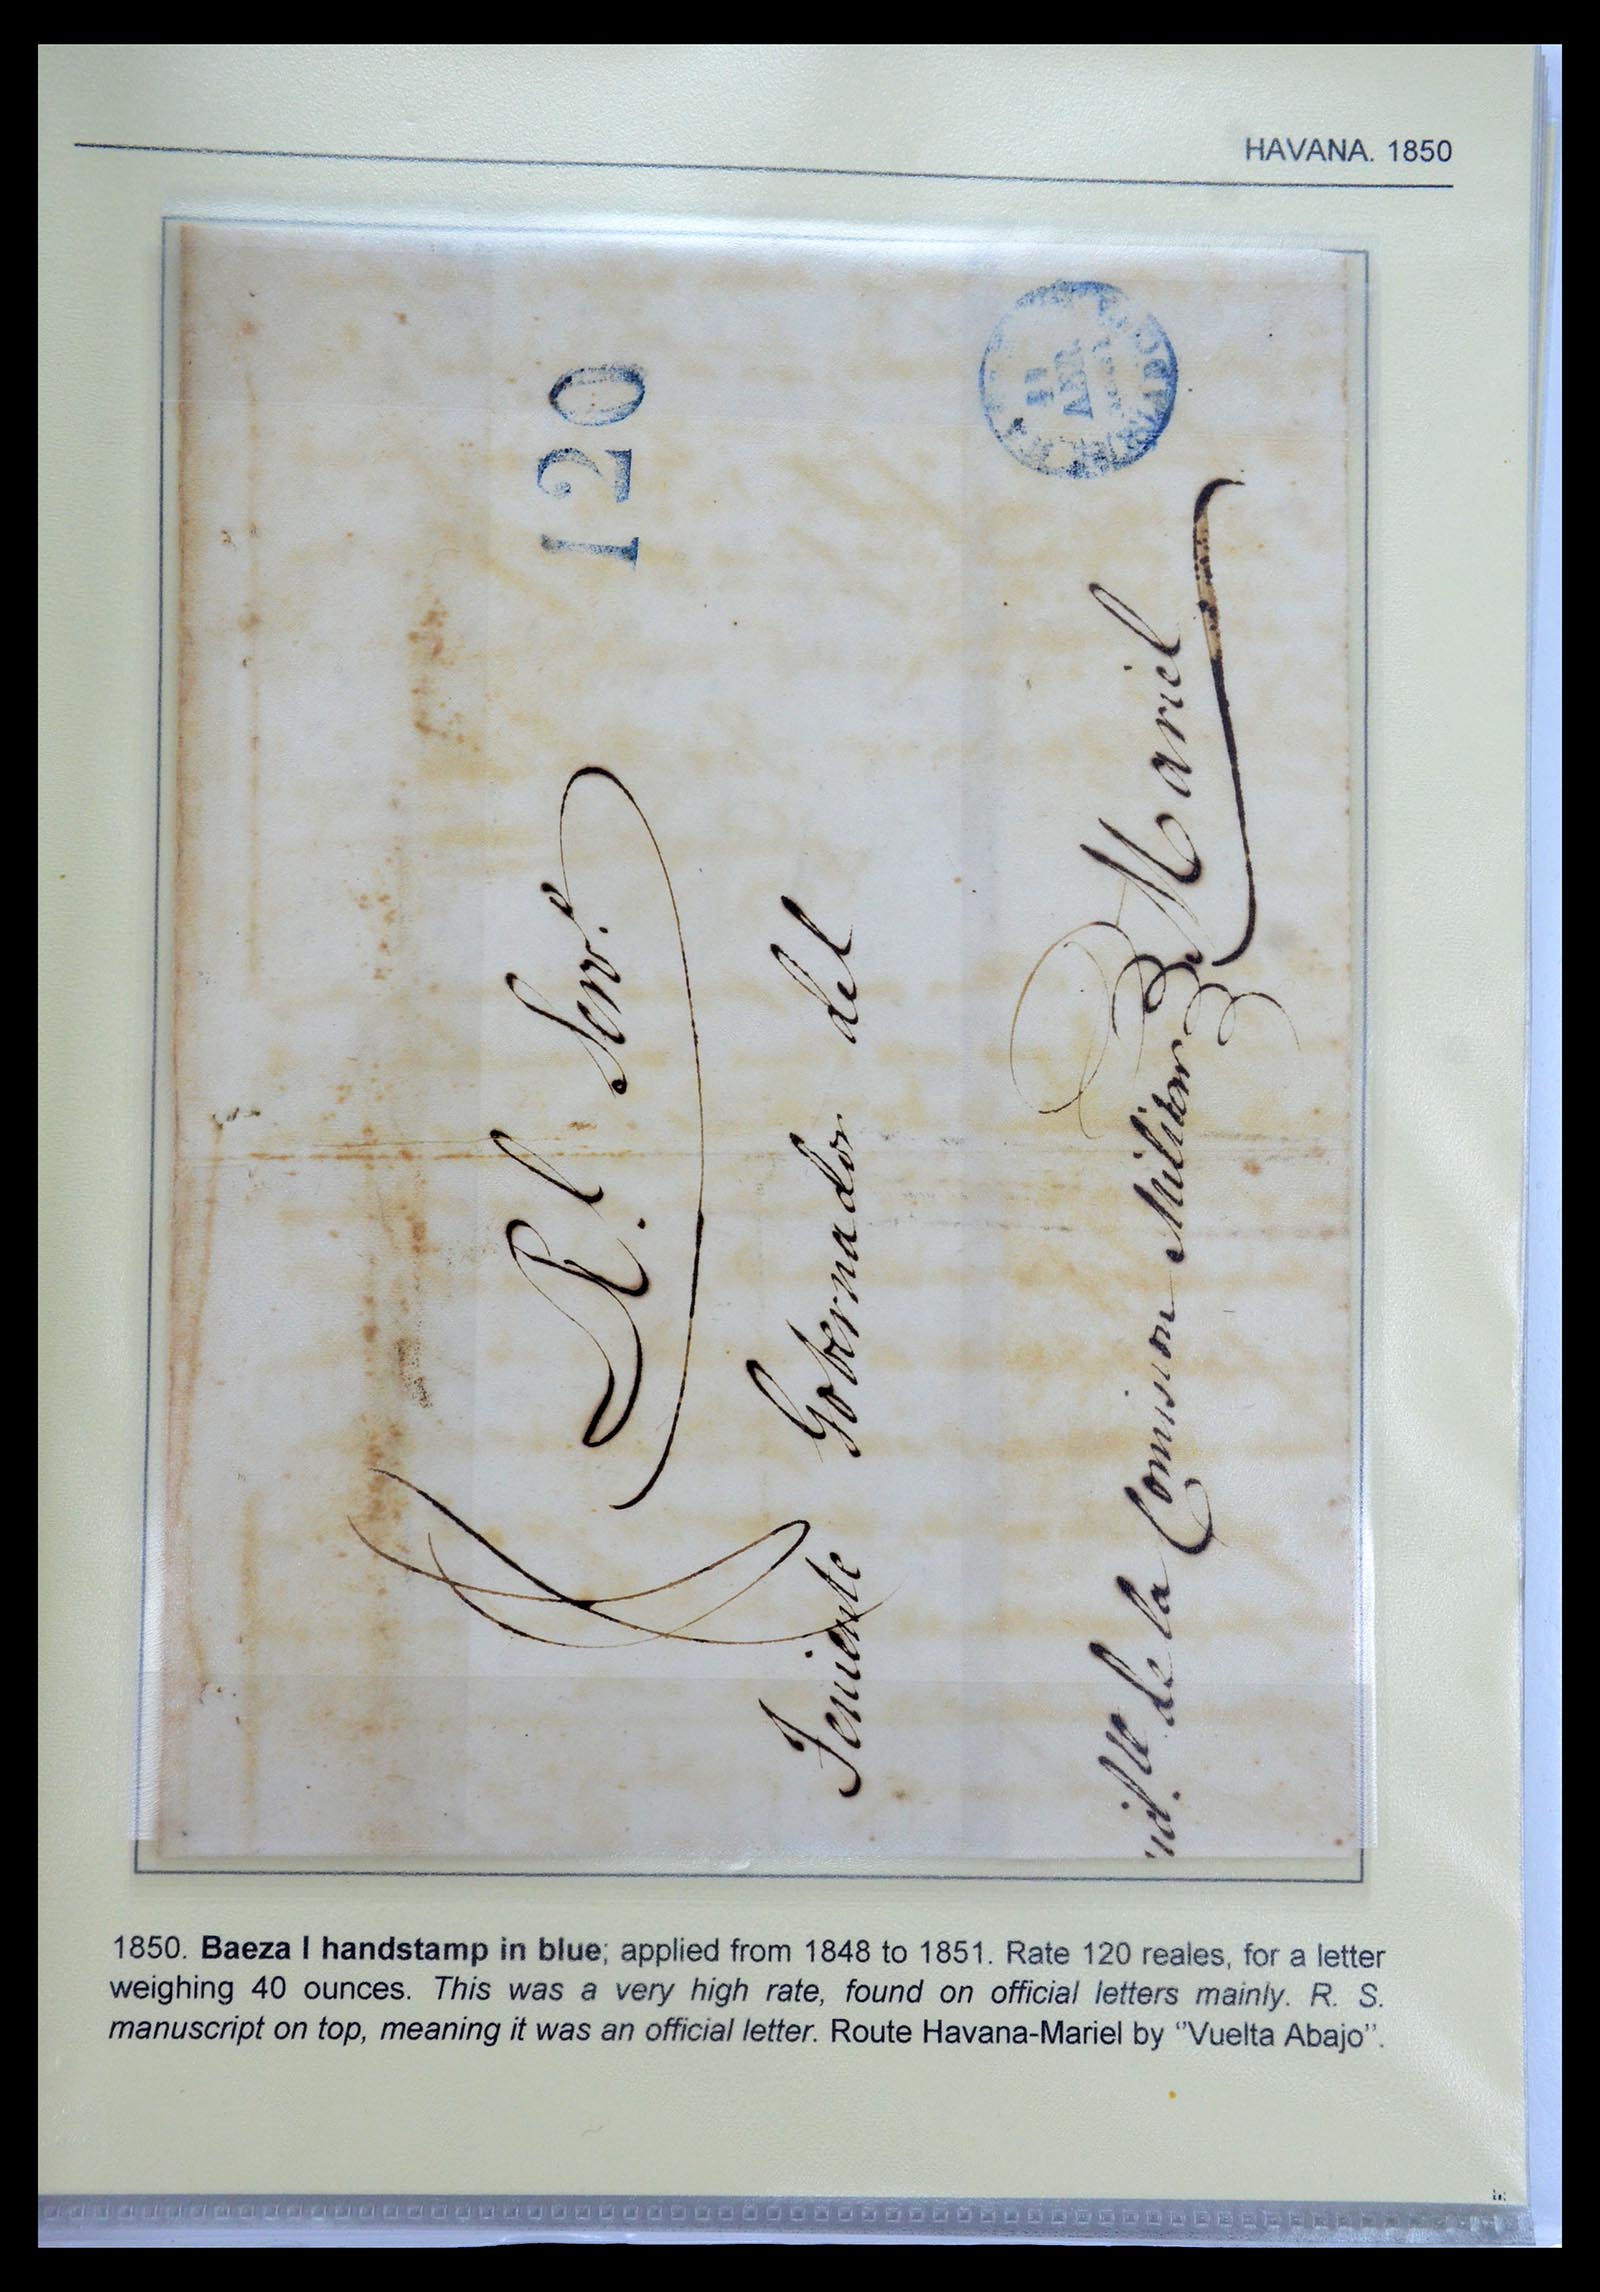 HAVANA. 1850
120
ABR.
R.l Serv.o
Teniente Gobernador del
Mariel
de la Comision Militar
1850. Baeza I handstamp in blue; applied from 1848 to 1851. Rate 120 reales, for a letter
weighing 40 ounces. This was a very high rate, found on official letters mainly. R. S.
manuscript on top, meaning it was an official letter. Route Havana-Mariel by ‘’Vuelta Abajo’’.